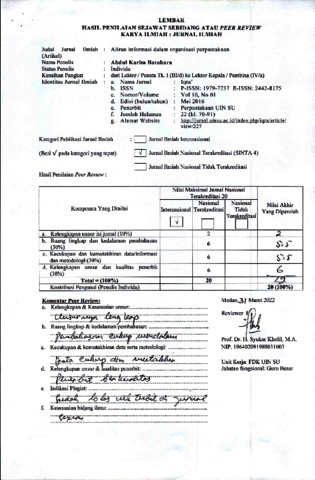 LEMBAR
HASIL PENILAIAN SEJAWAT SEBIDANG ATAU PEER REVIEW
KARYA ILMIAH : JURNAL ILMIAH
Judul Jurnal Ilmiah : Aliran informasi dalam organisasi perpustakaan
(Artikel)
Nama Penulis : Abdul Karim Batubara
Status Penulis : Individu
Kenaikan Pangkat : dari Lektor / Penata Tk. I (III/d) ke Lektor Kepala / Pembina (IV/a)
Identitas Jurnal Ilmiah : a. Nama Jurnal : Iqra'
b. ISSN : P-ISSN: 1979-7737 E-ISSN: 2442-8175
c. Nomor/Volume : Vol 10, No 01
d. Edisi (bulan/tahun) : Mei 2016
e. Penerbit : Perpustakaan UIN SU
f. Jumlah Halaman : 22 (hl. 70-91)
g. Alamat Website : http://jurnal.uinsu.ac.id/index.php/iqra/article/
view/227
Kategori Publikasi Jurnal Ilmiah : Jurnal Ilmiah Internasional
(Beri √ pada kategori yang tepat) √ Jurnal Ilmiah Nasional Terakreditasi (SINTA 4)
Jurnal Ilmiah Nasional Tidak Terakreditasi
Hasil Penilaian Peer Review :
Komponen Yang Dinilai
Nilai Maksimal Jurnal Nasional
Terakreditasi 20
Internasional
√
Nasional
Terakreditasi
Nasional
Tidak
Terakreditasi
Nilai Akhir
Yang Diperoleh
a. Kelengkapan unsur isi jurnal (10%) 2 2
b. Ruang lingkup dan kedalaman pembahasan
(30%) 6 5.5
c. Kecukupan dan kemutakhiran data/informasi
dan metodologi (30%) 6 5.5
d. Kelengkapan unsur dan kualitas penerbit
(30%) 6 6
Total = (100%) 20 19
Kontribusi Pengusul (Penulis Individu) 20 (100%)
Komentar Peer Review:
a. Kelengkapan & Kesesuaian unsur:
Unsurnya lengkap
b. Ruang lingkup & kedalaman pembahasan:
Pembahasan cukup mendalam
c. Kecukupan & kemutakhiran data serta metodologi:
Data cukup dan
d. Kelengkapan unsur & kualitas penerbit:
Penerbit berkualitas
e. Indikasi Plagiat:
Sudah lolos terbit di jurnal
f. Kesesuaian bidang ilmu:
Sesuai
Medan, 31 Maret 2022
Reviewer 1
Prof. Dr. H. Syukur Kholil, M.A.
Unit Kerja: FDK UIN SU
Jabatan fungsional: Guru Besar